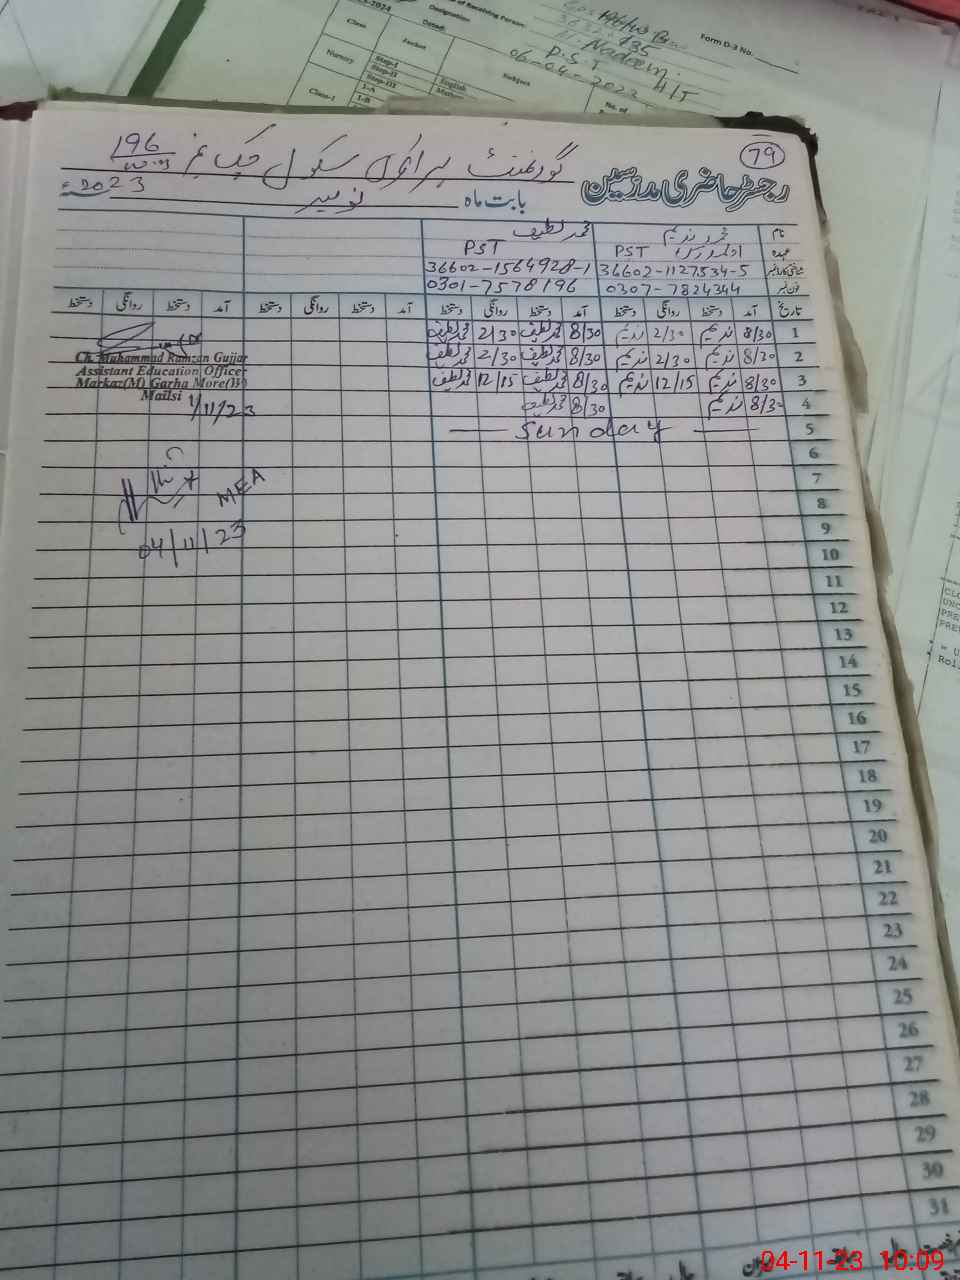 2023-2024
Designation
of Receiving Person:
Form D-3 No.
Class
Detail
Nursery
Section
Step-I
Step-II
Step-III
Class-1
1-A
1-B
English
Subject
No. of
Nadeem
P.S.T
H/T
06-04-2022
79
رجسٹر حاضری مدرسین
گورنمنٹ پرائمری سکول چک نمبر 196
بابت ماہ نومبر 2023ء
نام محمد ندیم محمد لطیف
عہدہ PST PST
شناختی کارڈ نمبر 36602-1127534-5 36602-1564928-1
فون نمبر 0307-7824344 0301-7578196
تاریخ آمد دستخط روانگی دستخط آمد دستخط روانگی دستخط آمد دستخط روانگی دستخط آمد دستخط روانگی دستخط
1 8/30 ندیم 2/30 ندیم 8/30 محمد لطیف 2/30 محمد لطیف
2 8/30 ندیم 2/30 ندیم 8/30 محمد لطیف 2/30 محمد لطیف
3 8/30 ندیم 12/15 ندیم 8/30 محمد لطیف 12/15 محمد لطیف
4 8/30 ندیم 8/30 محمد لطیف
5 Sunday
Ch. Muhammad Ramzan Gujjar
Assistant Education Officer
Markaz(M) Garha More(W)
Mailsi
1/11/23
MEA
04/11/23
6
7
8
9
10
11
12
13
14
15
16
17
18
19
20
21
22
23
24
25
26
27
28
29
30
31
04-11-23 10:09